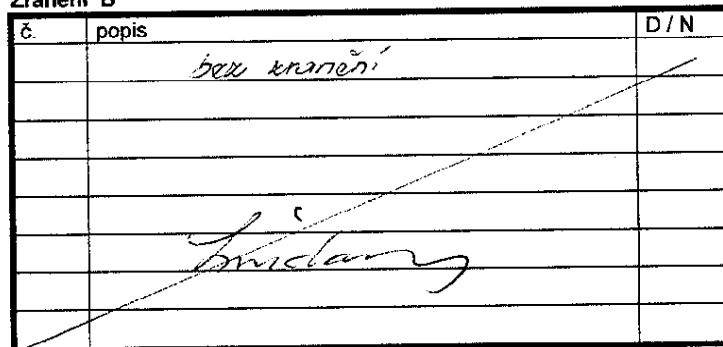 Zranění "B"
č. popis D / N
bez zranění